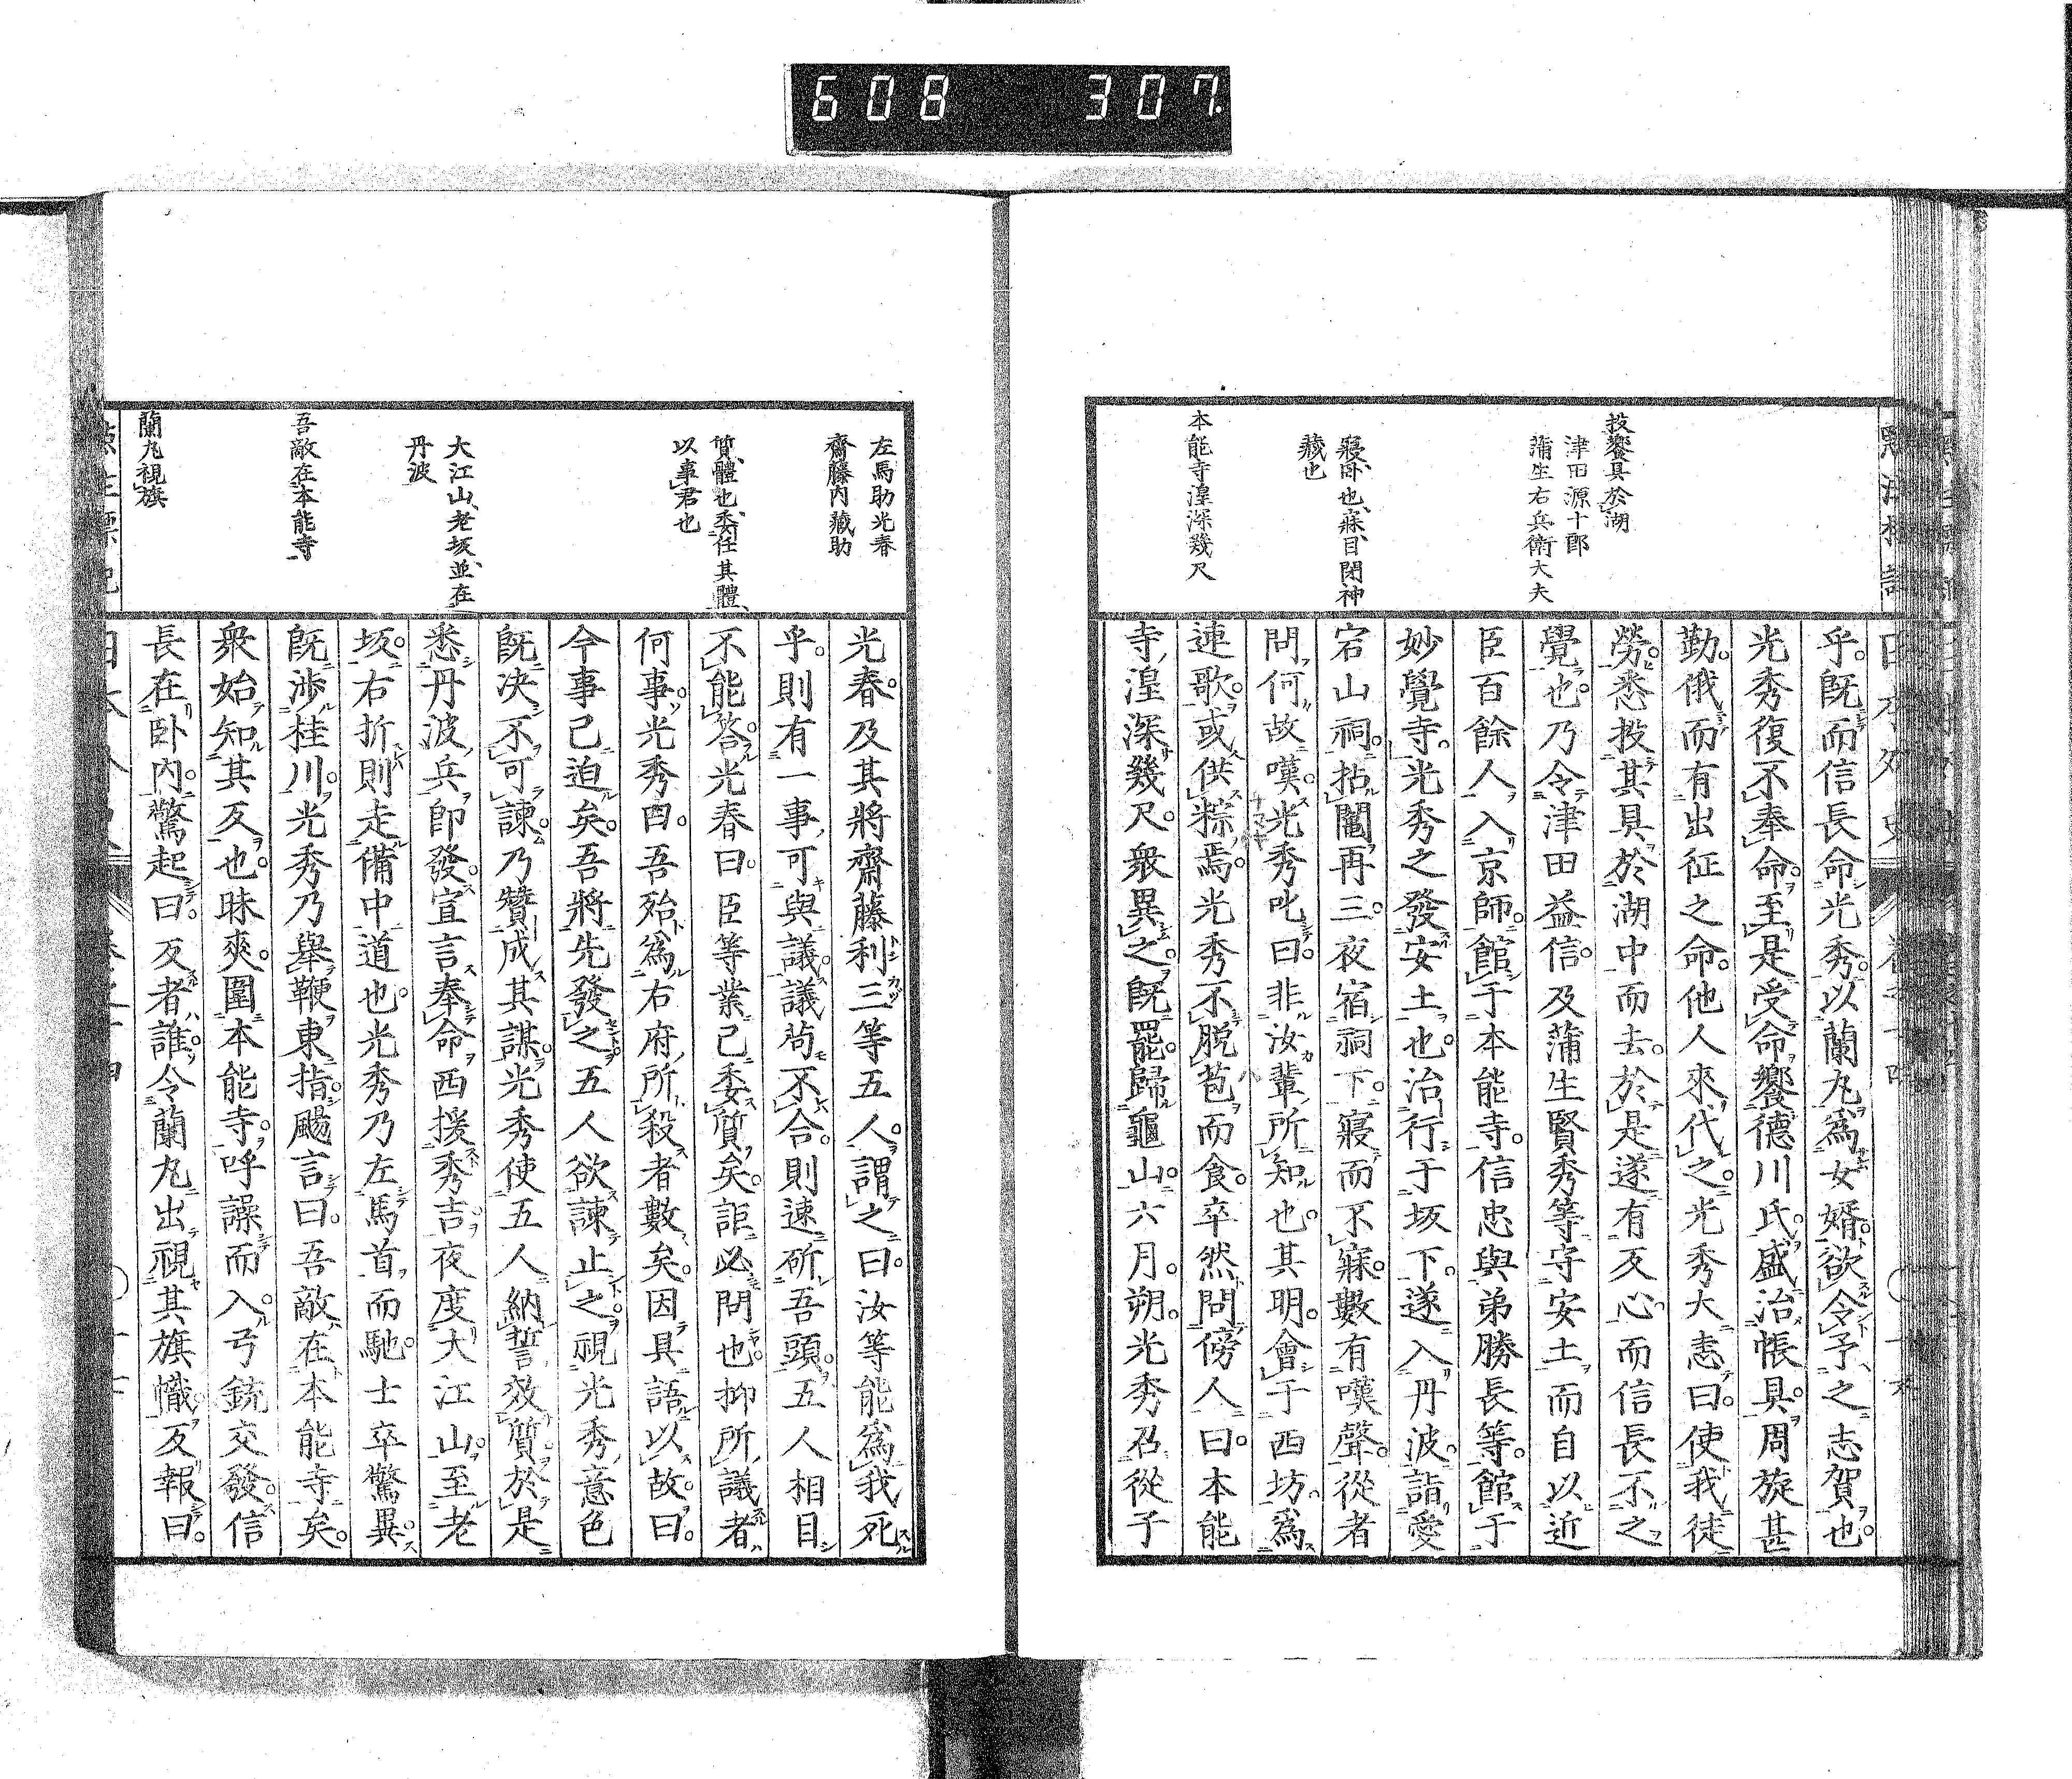 608 307
投饗具於湖
津田源十郎
蒲生右兵衛大夫
寢、臥也、寐、目閉神
藏也
本能寺湟深幾尺
乎。既而信長命光秀。以蘭丸爲女婿。欲令予之志賀也。
光秀復不奉命。至是受命饗德川氏。盛治帳具。周旋甚
勤。俄而有出征之命。他人來代之。光秀大恚曰。使我徒
勞。悉投其具於湖中而去。於是遂有反心。而信長不之
覺也。乃令津田益信。及蒲生賢秀等守安土。而自以近
臣百餘人入京師。館于本能寺。信忠與弟勝長等。館于
妙覺寺。光秀之發安土也。治行于坂下。遂入丹波。詣愛
宕山祠。拈鬮再三。夜宿祠下。寢而不寐。數有嘆聲。從者
問何故嘆。光秀叱曰。非汝輩所知也。其明。會于西坊。爲
連歌。或供粽焉。光秀不脱苞而食。卒然問傍人曰。本能
寺湟深幾尺。衆異之。既罷歸龜山。六月。朔。光秀召從子
左馬助光春
齋藤内藏助
質、體也、委任其體、
以事君也
大江山、老坂、並在
丹波
吾敵在本能寺
蘭丸視旗
光春。及其將齋藤利三等五人。謂之曰。汝等能爲我死
乎。則有一事可與議。議苟不合。則速斫吾頭。五人相目
不能答。光春曰。臣等業已委質矣。詎必問也。抑所議者
何事。光秀曰。吾殆爲右府所殺者數矣。因具語以故。曰。
今事已迫矣。吾將先發之。五人欲諫止之。視光秀意色
既决。不可諫。乃贊成其謀。光秀使五人納誓效質。於是
悉丹波兵即發。宣言奉命西援秀吉。夜度大江山。至老
坂。右折則走備中道也。光秀乃左馬首而馳。士卒驚異。
既渉桂川。光秀乃擧鞭東指。颺言曰。吾敵在本能寺矣。
衆始知其反也。昧爽。圍本能寺。呼譟而入。弓銃交發。信
長在臥内。驚起曰。反者誰。令蘭丸出視其旗幟。反報曰。